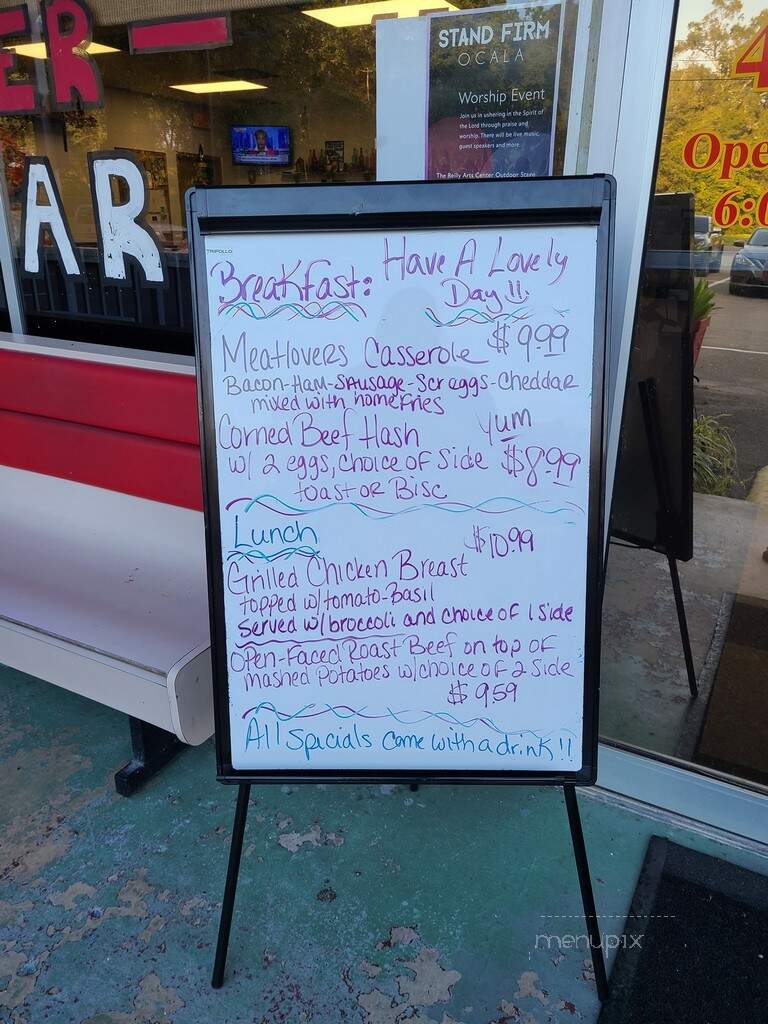 ER
AR
STAND FIRM
OCALA
Worship Event
Join us in ushering in the Spirit of
the Lord through praise and
worship. There will be live music,
guest speakers and more.
The Reilly Arts Center Outdoor Stage
Ope
6:0
TRIPOLLO
Breakfast: Have A Lovely
Day!!
MeatLovers Casserole $9.99
Bacon-Ham-Sausage-Scr eggs-Cheddar
mixed with home fries
Corned Beef Hash yum
w/ 2 eggs, choice of side $8.99
toast or Bisc
Lunch
$10.99
Grilled Chicken Breast
topped w/tomato-Basil
served w/broccoli and choice of 1 side
Open-Faced Roast Beef on top of
mashed Potatoes w/choice of 2 side
$9.59
All Specials come with a drink!!
menupix